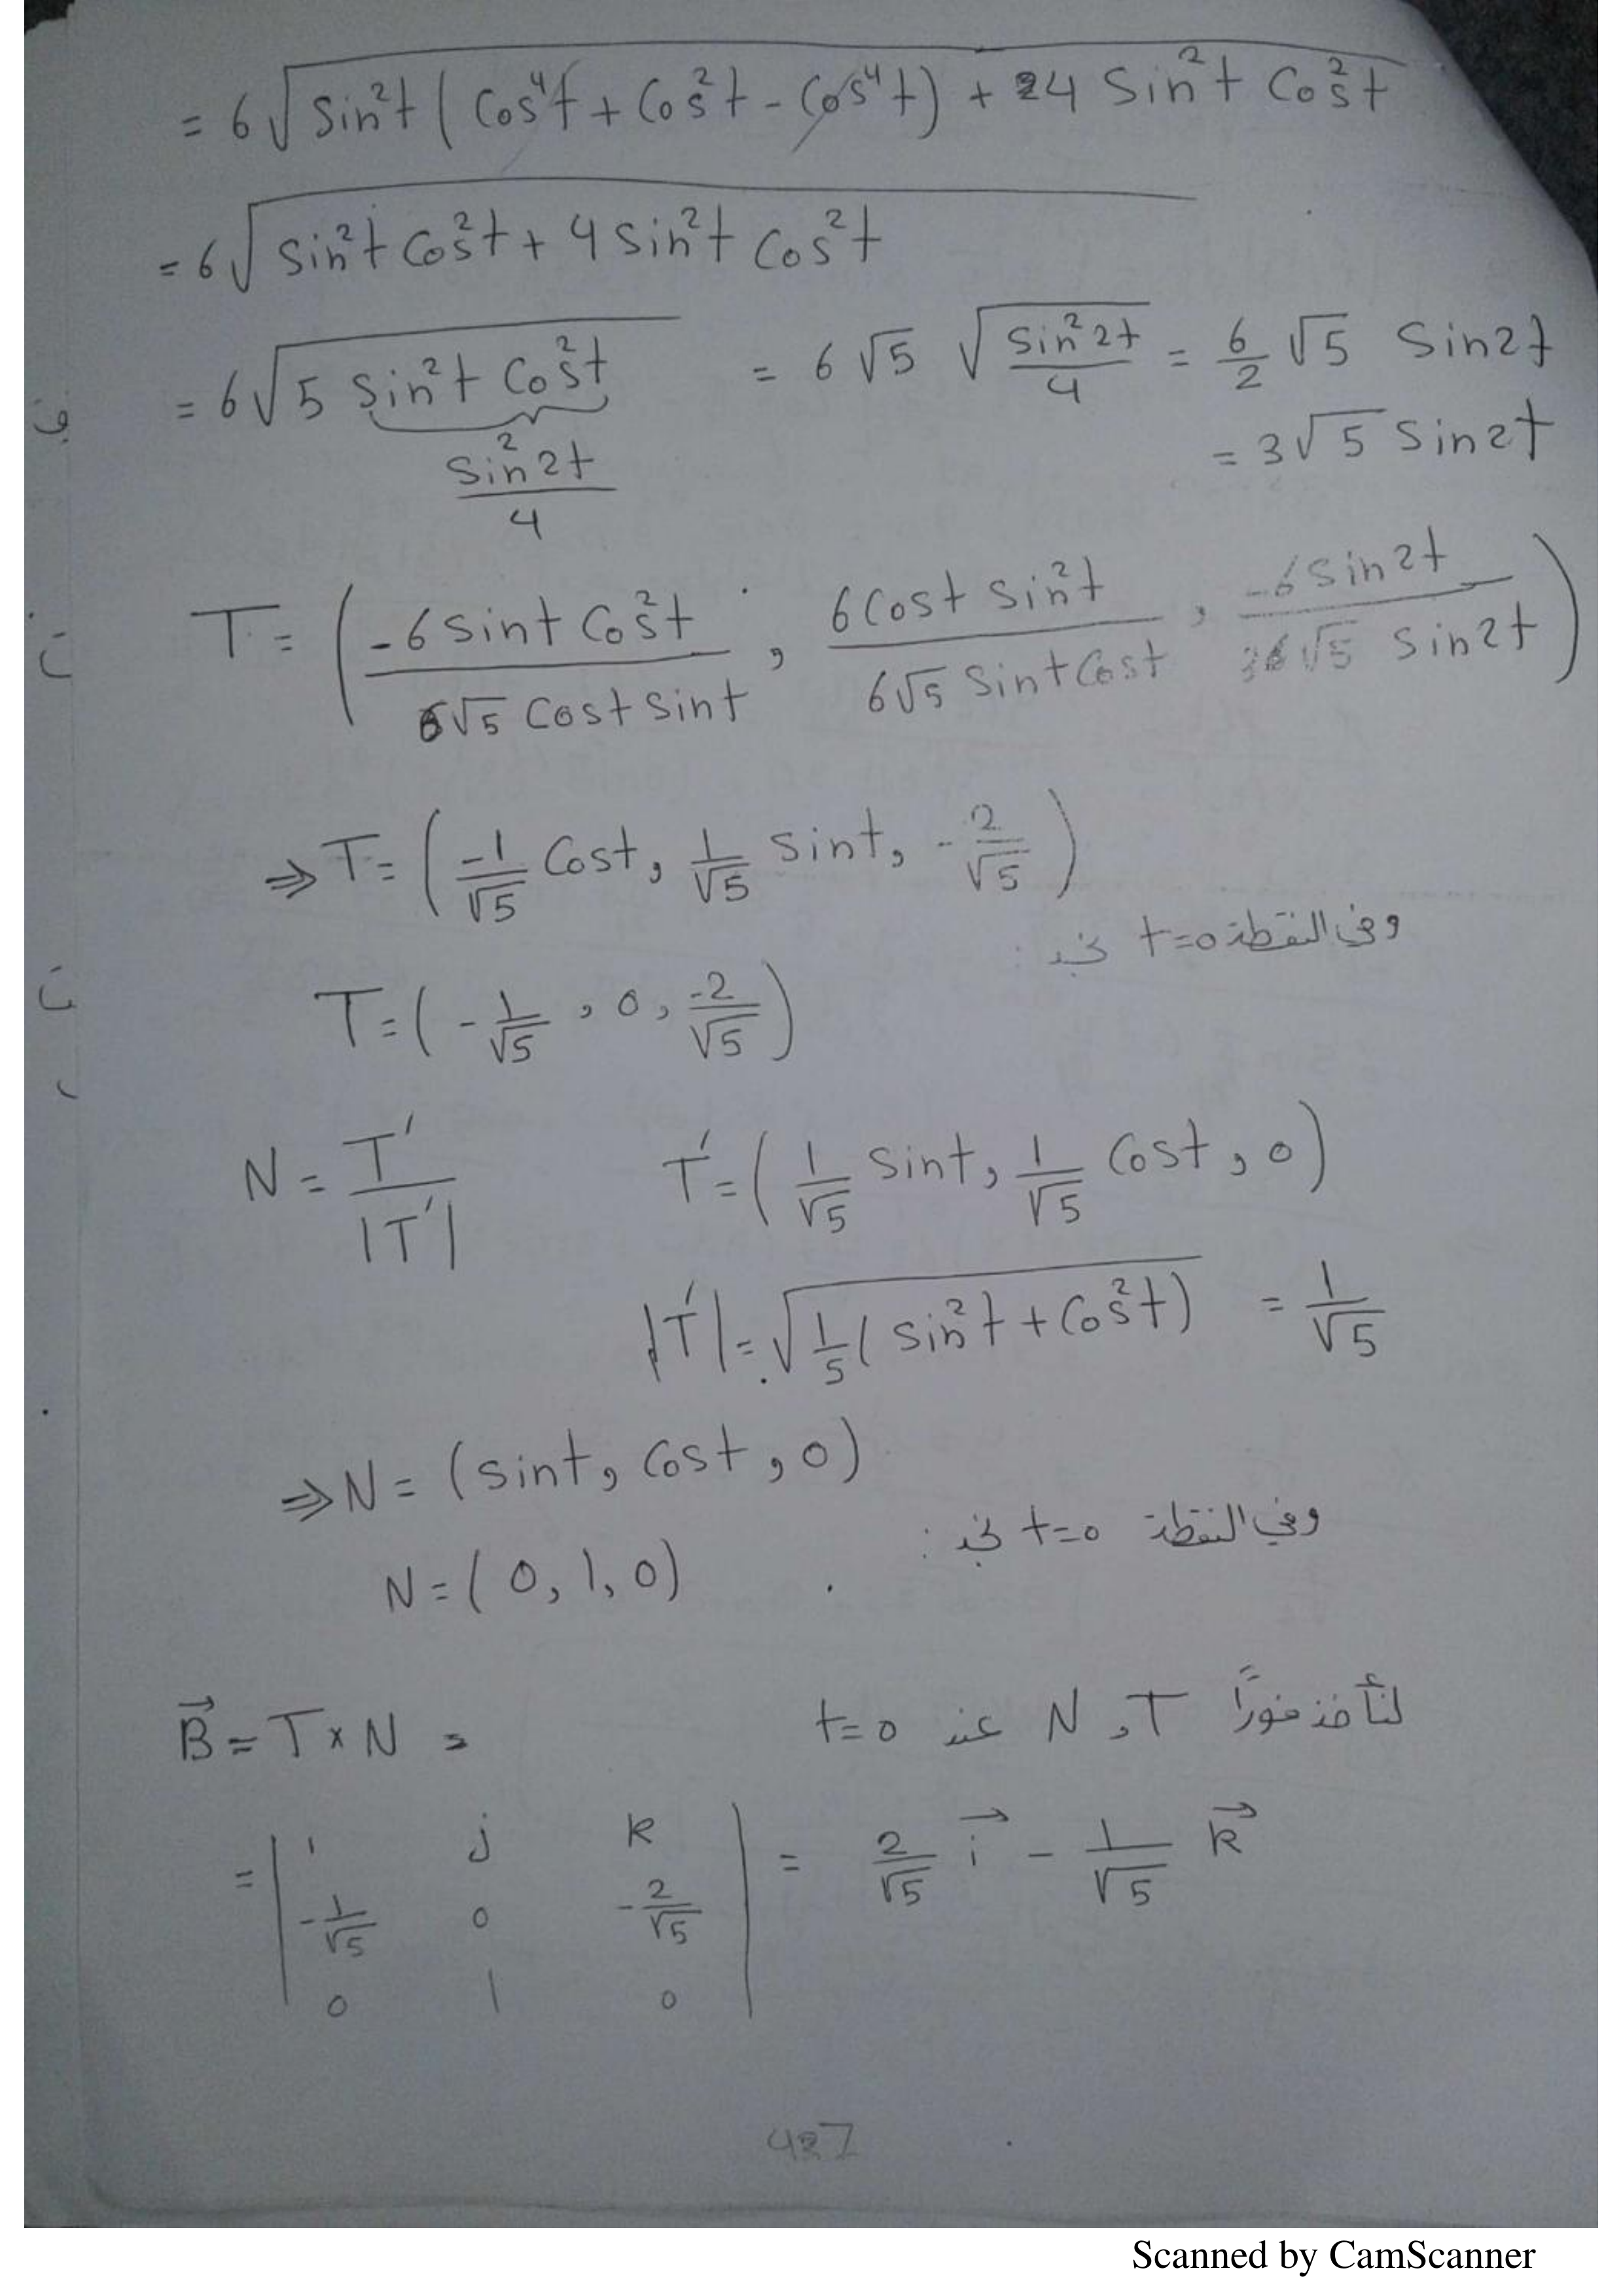 = 6√(Sin²t (Cos⁴t + Cos²t - Cos⁴t) + 4 Sin²t Cos²t)
= 6√(Sin²t Cos²t + 4 Sin²t Cos²t)
= 6√(5 Sin²t Cos²t) = 6√5 √(Sin²2t/4) = 6/2 √5 Sin2t
Sin²2t/4
= 3√5 Sin2t
T = (-6 Sint Cos²t / 6√5 Cost Sint , 6 Cost Sin²t / 6√5 Sint Cost , -6 Sin2t / 3√5 Sin2t)
⇒ T = (-1/√5 Cost, 1/√5 Sint, -2/√5)
وفي النقطة t=0 نجد :
T = (-1/√5 , 0 , -2/√5)
N = T′/|T′| T′ = (1/√5 Sint, 1/√5 Cost, 0)
|T′| = √(1/5 (Sin²t + Cos²t)) = 1/√5
⇒ N = (Sint, Cost, 0)
وفي النقطة t=0 نجد :
N = (0, 1, 0)
لنأخذ فوراً T , N عند t=0
B⃗ = T × N =
= | i j k | = 2/√5 i⃗ - 1/√5 k⃗
| -1/√5 0 -2/√5 |
| 0 1 0 |
427
Scanned by CamScanner